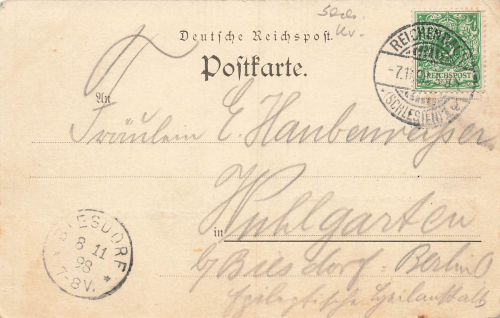 Deutsche Reichspost.
Postkarte.
REICHSPOST
(SCHLESIEN)
An
Fräulein E. Haubenreißer
Wuhlgarten
in
b/ Biesdorf-Berlin
Epileptische Heilanstalt
BIESDORF
8 11
98
7-8V.